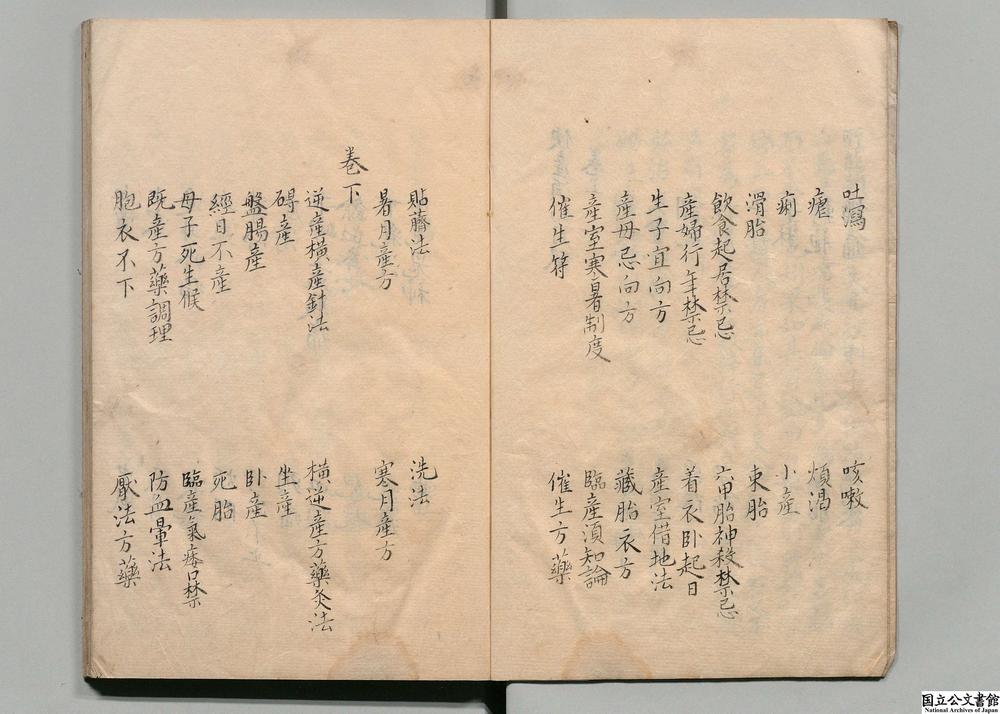 吐瀉 咳嗽
瘧 煩渇
痢 小産
滑胎 束胎
飲食起居禁忌 六甲胎神殺禁忌
産婦行年禁忌 着衣卧起日
生子宜向方 産室借地法
産母忌向方 藏胎衣方
産室寒暑制度 臨産須知論
催生符 催生方藥
貼臍法 洗法
暑月産方 寒月産方
巻下
逆産横産針法 横逆産方藥灸法
碍産 坐産
盤腸産 卧産
經日不産 死胎
母子死生候 臨産氣痿口禁
既産方藥調理 防血暈法
胞衣不下 厭法方藥
国立公文書館
National Archives of Japan